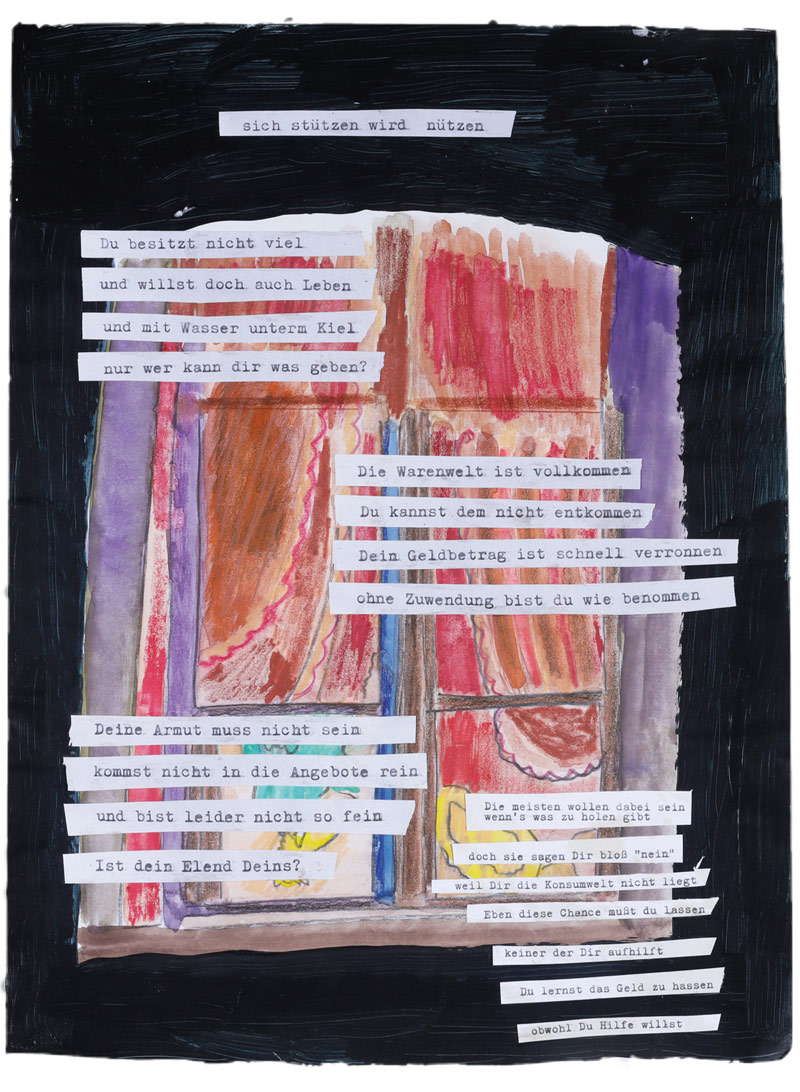 sich stützen wird nützen
Du besitzt nicht viel
und willst doch auch Leben
und mit Wasser unterm Kiel
nur wer kann dir was geben?
Die Warenwelt ist vollkommen
Du kannst dem nicht entkommen
Dein Geldbetrag ist schnell verronnen
ohne Zuwendung bist du wie benommen
Deine Armut muss nicht sein
kommst nicht in die Angebote rein
und bist leider nicht so fein
Ist dein Elend Deins?
Die meisten wollen dabei sein
wenn's was zu holen gibt
doch sie sagen Dir bloß "nein"
weil Dir die Konsumwelt nicht liegt
Eben diese Chance mußt du lassen
keiner der Dir aufhilft
Du lernst das Geld zu hassen
obwohl Du Hilfe willst